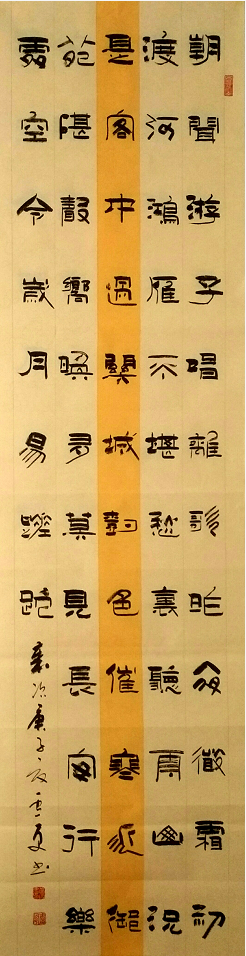 朝聞游子唱離歌昨夜微霜初
渡河鴻雁不堪愁裏聽雲山況
是客中過關城樹色催寒近御
苑砧聲嚮晚多莫見長安行樂
處空令歲月易蹉跎
歲次庚子